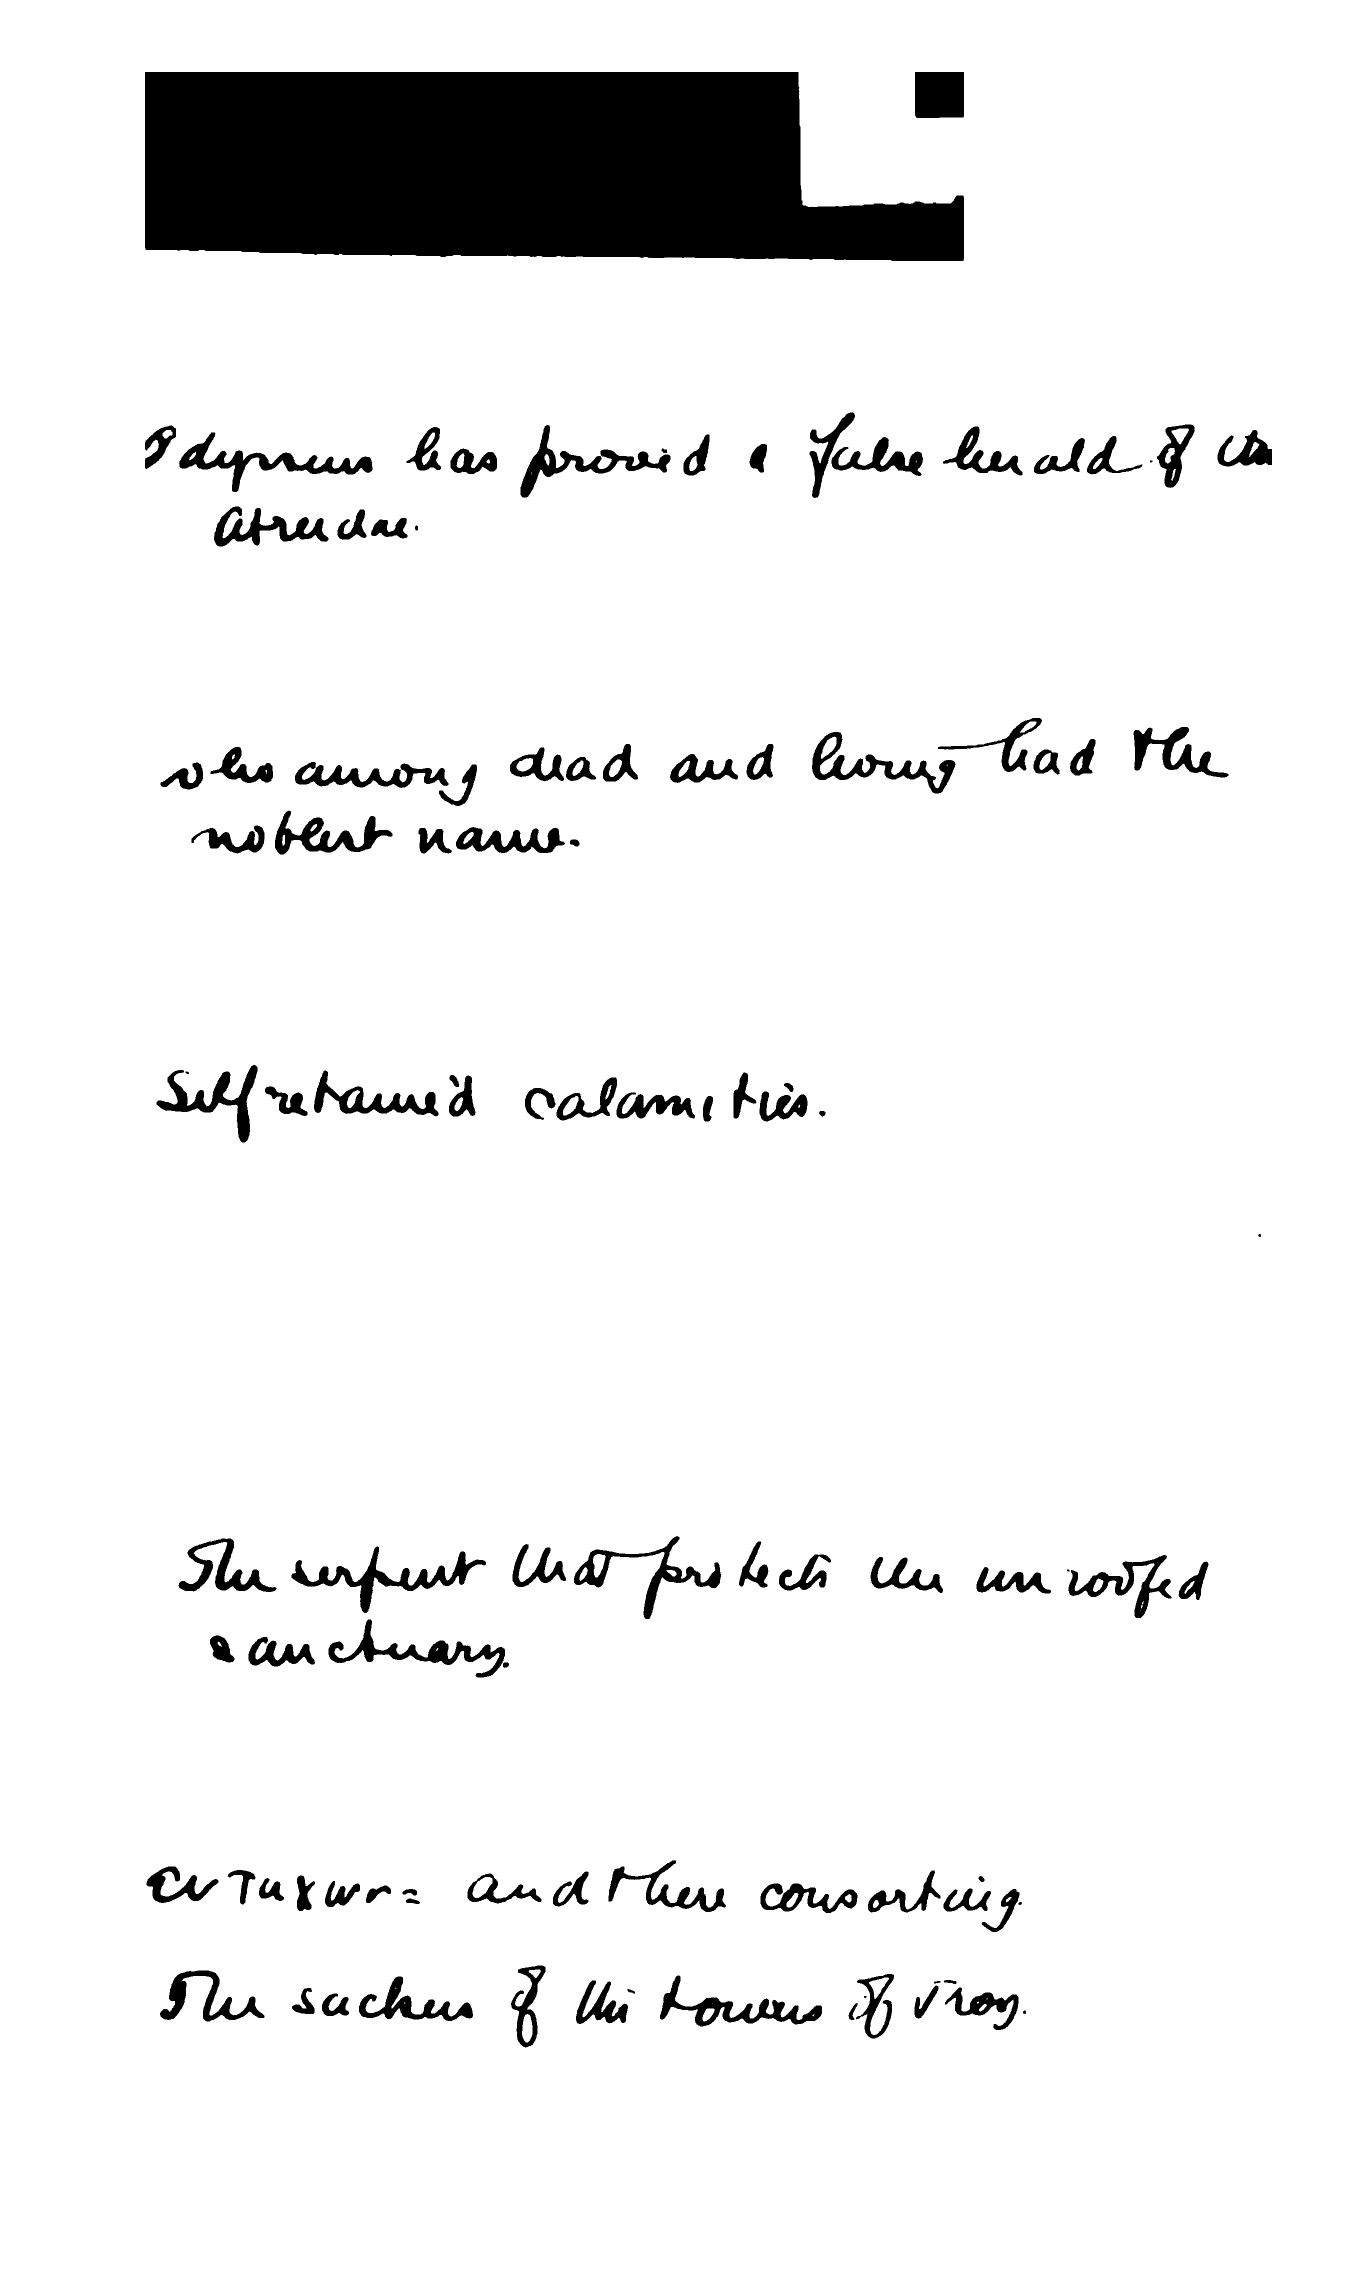 Odysseus has proved a false herald of the
Atreidae.
who among dead and living had the
noblest name.
Self retained calamities.
The serpent that protects the unroofed
sanctuary.
εντυχων = and there consorting
The sackers of the towers of Troy.